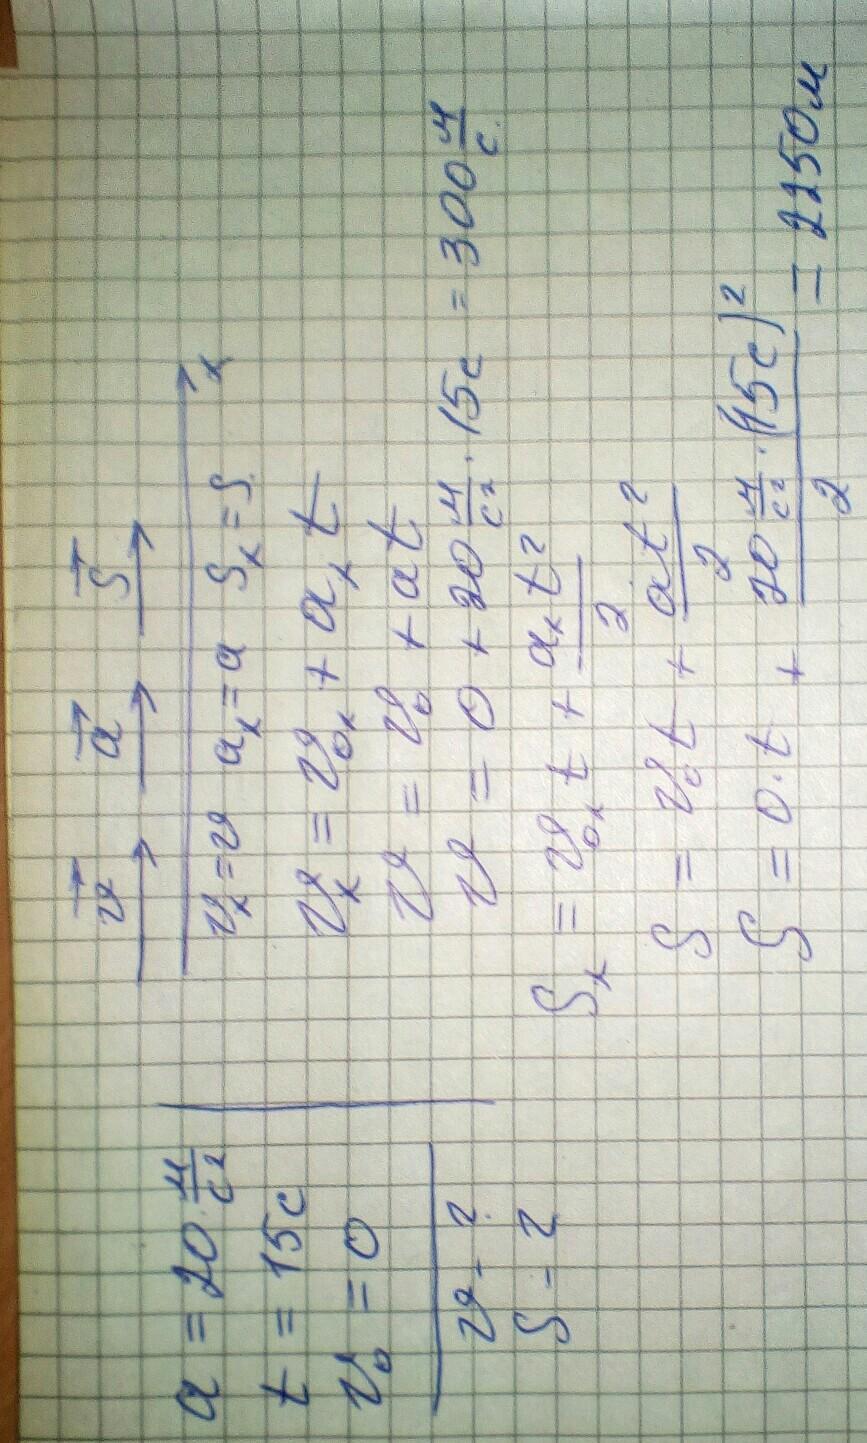 a = 20 м/с²
t = 15с
v₀ = 0
v - ?
S - ?
v⃗ a⃗ S⃗
x
vₓ = v aₓ = a Sₓ = S
vₓ = v₀ₓ + aₓ t
v = v₀ + at
v = 0 + 20 м/с² · 15с = 300 м/с
Sₓ = v₀ₓ t + aₓ t²/2
S = v₀ t + at²/2
S = 0·t + 20 м/с² · (15с)²/2 = 2250м